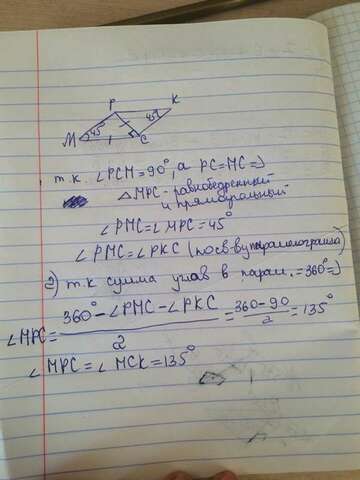 P K
45° 45°
M C
т.к. ∠PCM=90°, а PC=MC=)
△MPC - равнобедренный
и прямоугольный
∠PMC=∠MPC=45°
∠PMC=∠PKC (по св-ву параллелограмма)
2) т.к сумма углов в парал.=360°=)
∠MPC= 360°-∠PMC-∠PKC / 2 = 360-90 / 2 =135°
∠MPC=∠MCK=135°